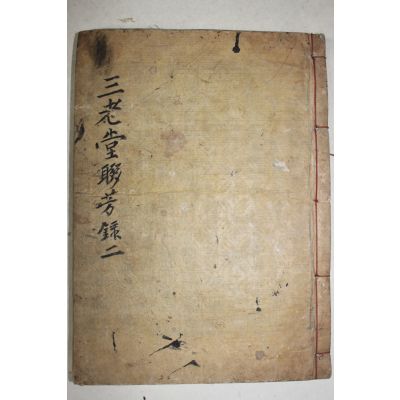 三老堂聯芳錄二